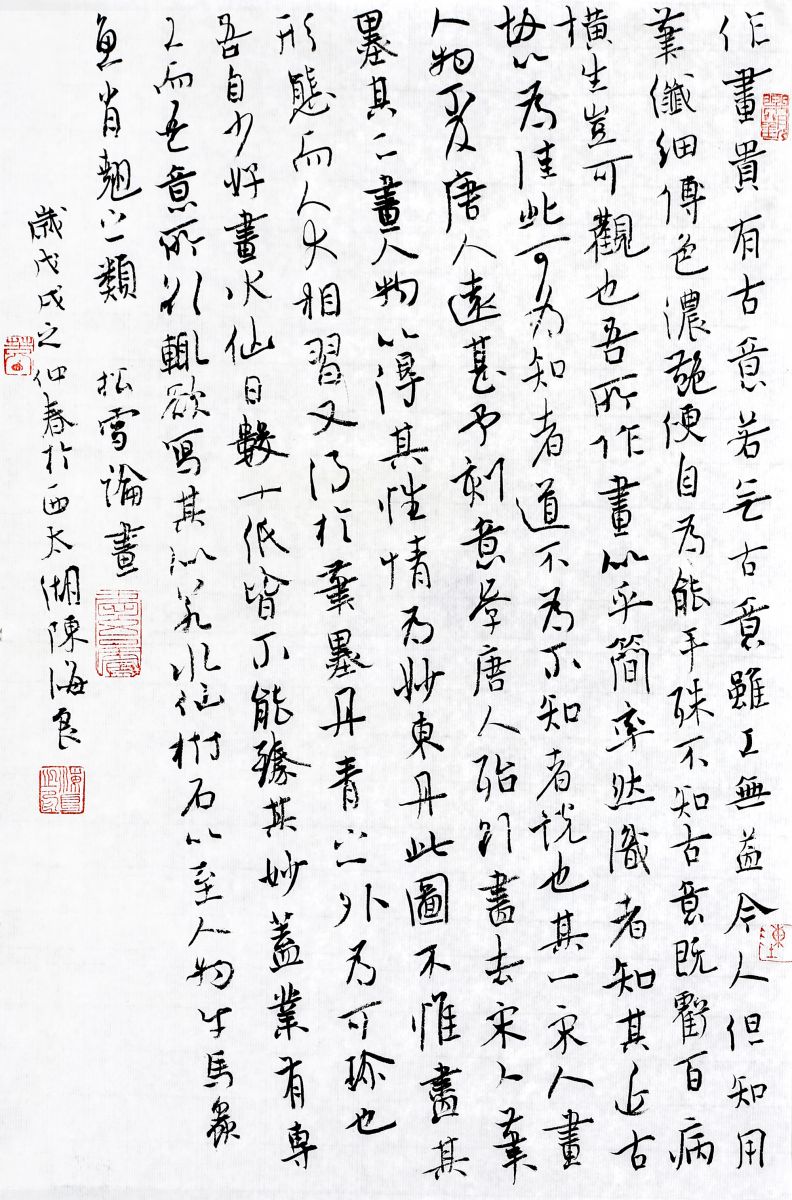 作畫貴有古意若无古意雖工無益今人但知用
筆纖細傅色濃艷便自為能手殊不知古意既虧百病
橫生豈可觀也吾所作畫似乎簡率然識者知其近古
故以為佳此可為知者道不為不知者說也其一宋人畫
人物不及唐人遠甚予刻意學唐人殆欲盡去宋人筆
墨其二畫人物以得其性情為妙東丹此圖不惟盡其
形態而人犬相習又得於筆墨丹青之外為可珍也
吾自少好畫水仙日數十紙皆不能臻其妙蓋業有專
工而吾意所輒欲寫其似若水仙樹石以至人物牛馬蟲
魚肖翹之類 松雪論畫
歲戊戌之仲春於西太湖陳海良